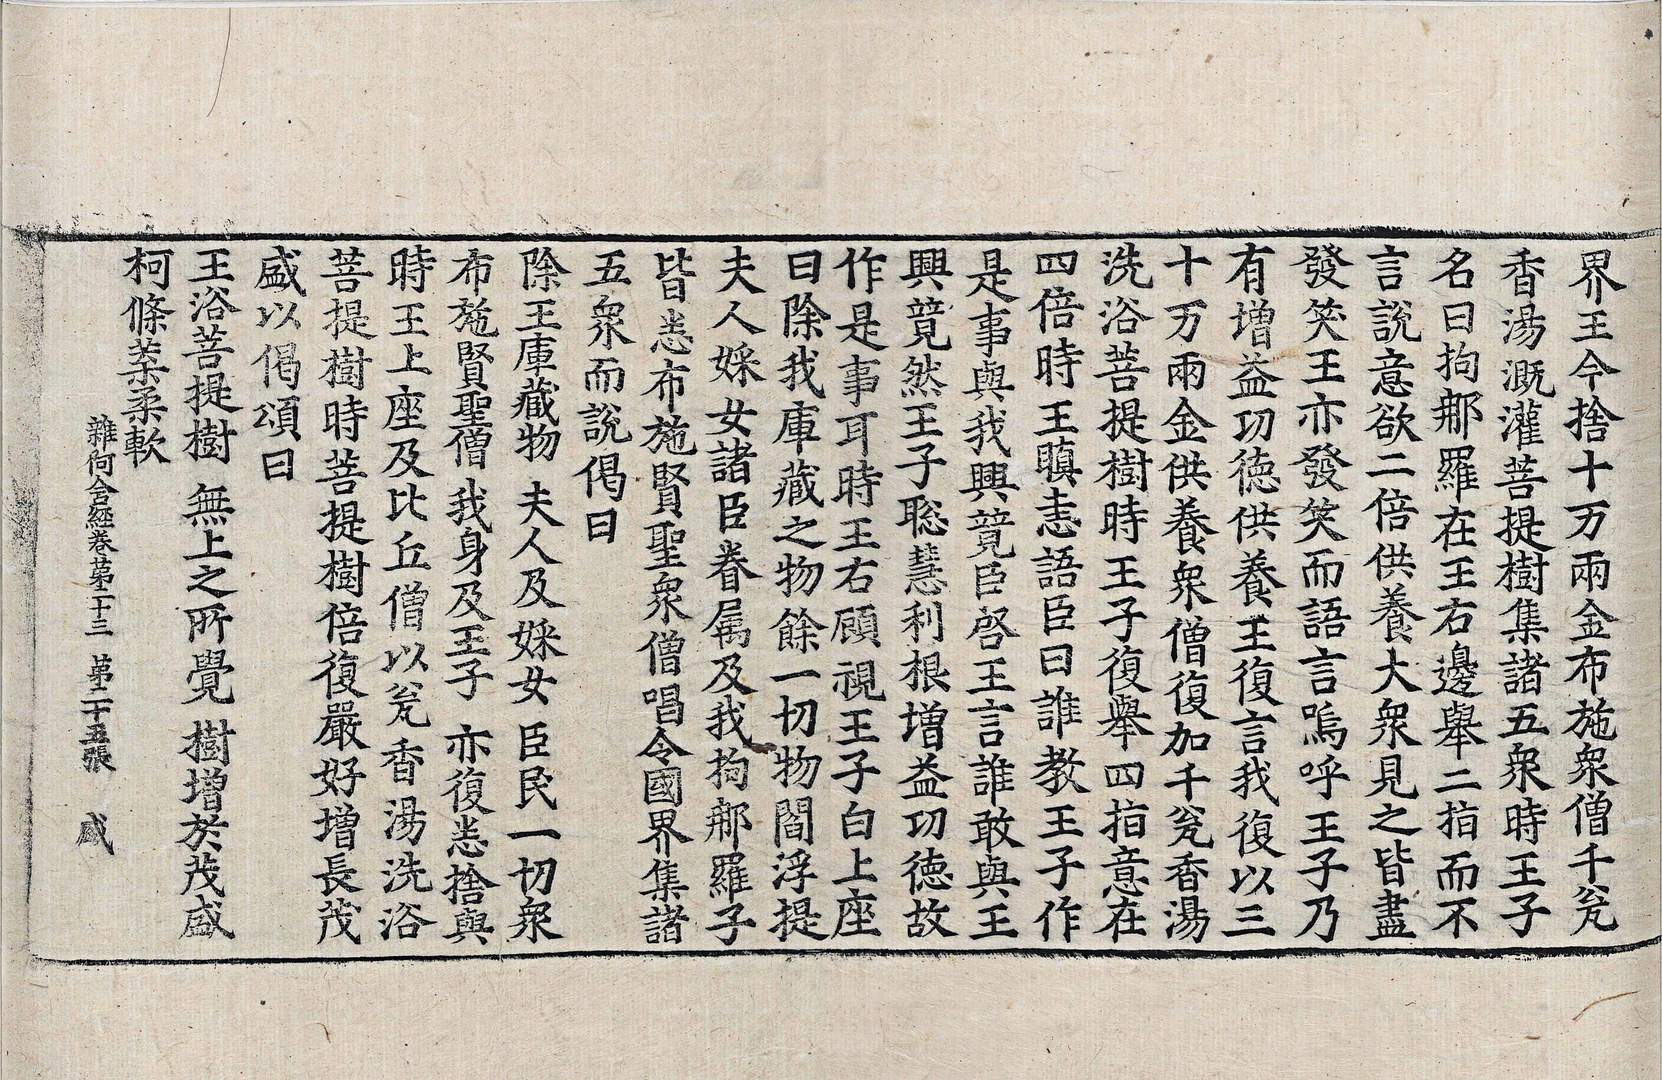 界王今捨十万兩金布施衆僧千瓮
香湯溉灌菩提樹集諸五衆時王子
名曰拘那羅在王右邊舉二指而不
言說意欲二倍供養大衆見之皆盡
發笑王亦發笑而語言嗚呼王子乃
有增益功徳供養王復言我復以三
十万兩金供養衆僧復加千瓮香湯
洗浴菩提樹時王子復舉四指意在
四倍時王瞋恚語臣曰誰教王子作
是事與我興競臣啓王言誰敢與王
興競然王子聡慧利根增益功徳故
作是事耳時王右顧視王子白上座
曰除我庫藏之物餘一切物閻浮提
夫人婇女諸臣眷属及我拘那羅子
皆悉布施賢聖衆僧唱令國界集諸
五衆而說偈曰
除王庫藏物 夫人及婇女 臣民一切衆
布施賢聖僧 我身及王子 亦復悉捨與
時王上座及比丘僧以瓮香湯洗浴
菩提樹時菩提樹倍復嚴好增長茂
盛以偈頌曰
王浴菩提樹 無上之所覺 樹增於茂盛
柯條葉柔軟
雜阿含經卷第二十三 第二十五張 盛